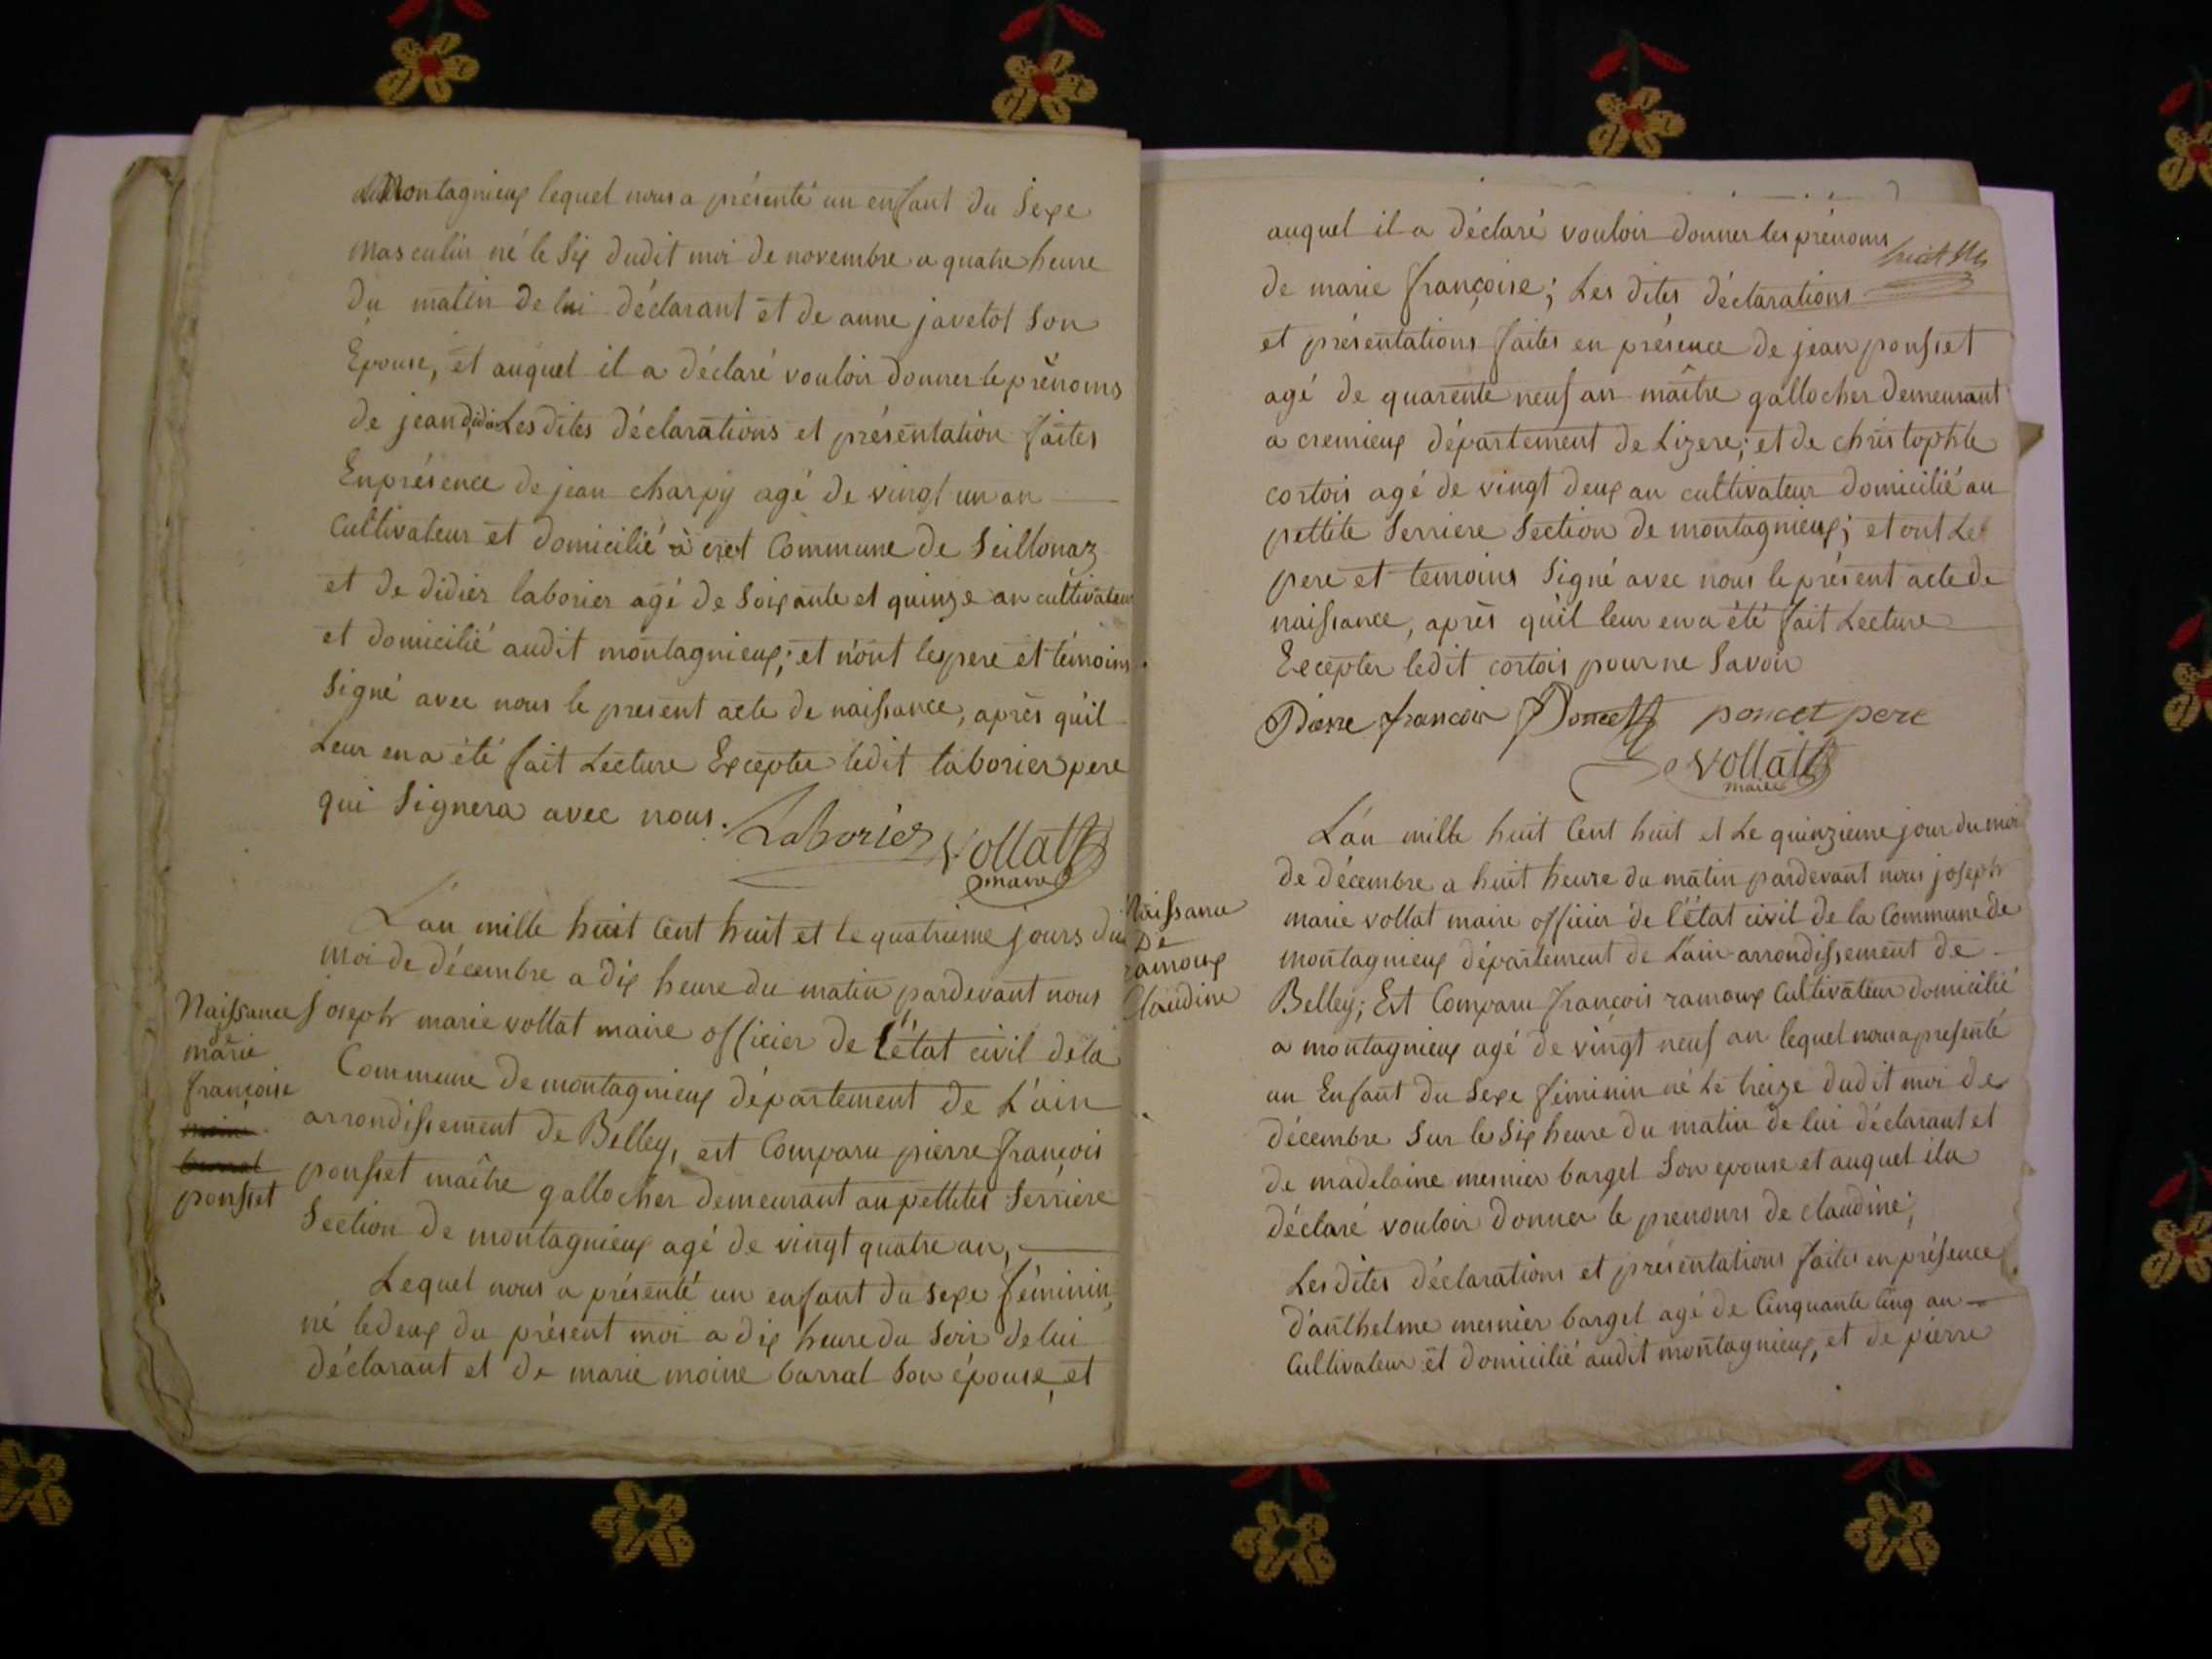 Montagnieux lequel nous a présenté un enfant du Sexe
Masculin né le Six dudit moi de novembre a quatre heure
du matin de lui déclarant et de anne javelot Son
Epouse, et auquel il a déclaré vouloir donner le prénoms
de jean didier Les dites déclarations et présentation faites
En présence de jean charpy agé de vingt un an
Cultivateur et domicilié à cret Commune de Seillonaz
et de didier laborier agé de Soixante et quinze an cultivateur
et domicilié audit montagnieux; et n'ont les pere et témoins
Signé avec nous le present acte de naissance, après qu'il
Leur en a été fait Lecture Excepter ledit laborier pere
qui Signera avec nous.
Laborier Vollat
maire
L'an mille huit Cent huit et le quatrieme jours du
moi de décembre a dix heure du matin pardevant nous
Joseph marie vollat maire officier de L'état civil de la
Commune de montagnieux département de L'ain
arrondissement de Belley, est Comparu pierre françois
ponsset maître gallocher demeurant au pettites Serriere
Section de montagnieux agé de vingt quatre an,
Lequel nous a présenté un enfant du Sexe féminin,
né le deux du présent moi a dix heure du Soir de lui
déclarant et de marie moine barral Son épouse, et
Naissance
de
marie
françoise
ponsset
auquel il a déclaré vouloir donner les prénoms
de marie françoise; Les dites déclarations
et présentations faites en présence de jean ponsset
agé de quarente neuf an maître gallocher demeurant
a cremieux département de Lizere; et de christophle
cortois agé de vingt deux an cultivateur domicilié au
pettite Serriere Section de montagnieux; et ont Les
pere et temoins Signé avec nous le présent acte de
naissance, après qu'il leur en a été fait Lecture
Excepter ledit cortois pour ne Savoir
Pierre françois Poncet poncet pere
Vollat
maire
Naissance
De
ramoux
Claudine
L'an mille huit Cent huit et Le quinzieme jour du moi
de décembre a huit heure du matin pardevant nous joseph
marie vollat maire officier de l'état civil de la Commune de
montagnieux département de L'ain arrondissement de
Belley; Est Comparu françois ramoux Cultivateur domicilié
a montagnieux agé de vingt neuf an lequel nous a presenté
un Enfant du Sexe féminin né Le treize dudit moi de
décembre Sur le Six heure du matin de lui déclarant et
de madelaine mesnier barget Son epouse et auquel il a
déclaré vouloir donner le prenoms de claudine;
Les dites déclarations et présentations faites en présence
d'anthelme mesnier barget agé de Cinquante Cinq an
Cultivateur et domicilié audit montagnieux, et de pierre